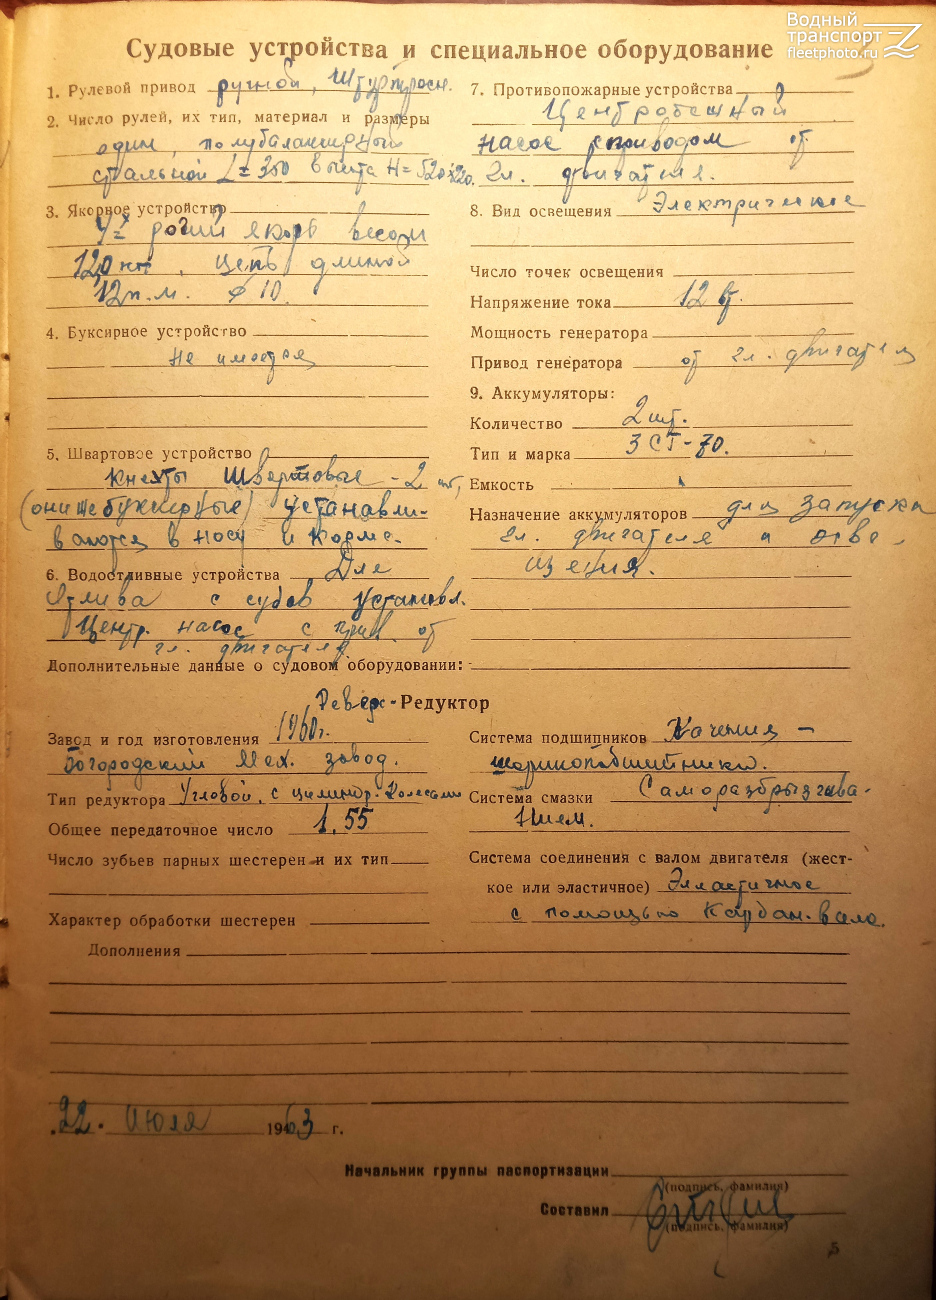 Водный
транспорт
fleetphoto.ru
Судовые устройства и специальное оборудование
1. Рулевой привод ручной, Штуртросн.
2. Число рулей, их тип, материал и размеры
один, полубалансирный
стальной L=350 высота H=520
3. Якорное устройство
якорь весом
120 кг, цепь длиной
12п.м. ⌀ 10.
4. Буксирное устройство
Не имеется
5. Швартовое устройство
Кнехты Швартовые - 2 шт,
(они же буксирные) устанавли-
ваются в носу и корме.
6. Водоотливные устройства Для
Отлива с судов установл.
Центр. насос с прив. от
гл. двигателя.
Дополнительные данные о судовом оборудовании:
7. Противопожарные устройства
Центробежный
насос с приводом от
гл. двигателя.
8. Вид освещения Электрическое
Число точек освещения
Напряжение тока 12 в.
Мощность генератора
Привод генератора от гл. двигателя
9. Аккумуляторы:
Количество 2 шт.
Тип и марка 3 СТ-70.
Емкость
Назначение аккумуляторов для запуска
гл. двигателя и осве-
щения.
Реверс-Редуктор
Завод и год изготовления 1960г.
Богородский Мех. завод.
Тип редуктора Угловой, с цилиндр. колесами
Общее передаточное число 1,55
Число зубьев парных шестерен и их тип
Характер обработки шестерен
Дополнения
Система подшипников Качения -
шарикоподшипники.
Система смазки Саморазбрызгива-
нием.
Система соединения с валом двигателя (жест-
кое или эластичное) Эластичное
с помощью Кардан. вала.
22. Июля 1963 г.
Начальник группы паспортизации
(подпись, фамилия)
Составил
(подпись, фамилия)
5